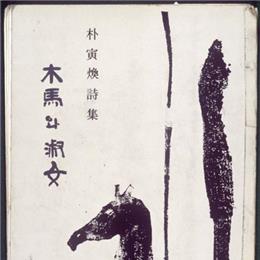 朴寅煥詩集
木馬와淑女